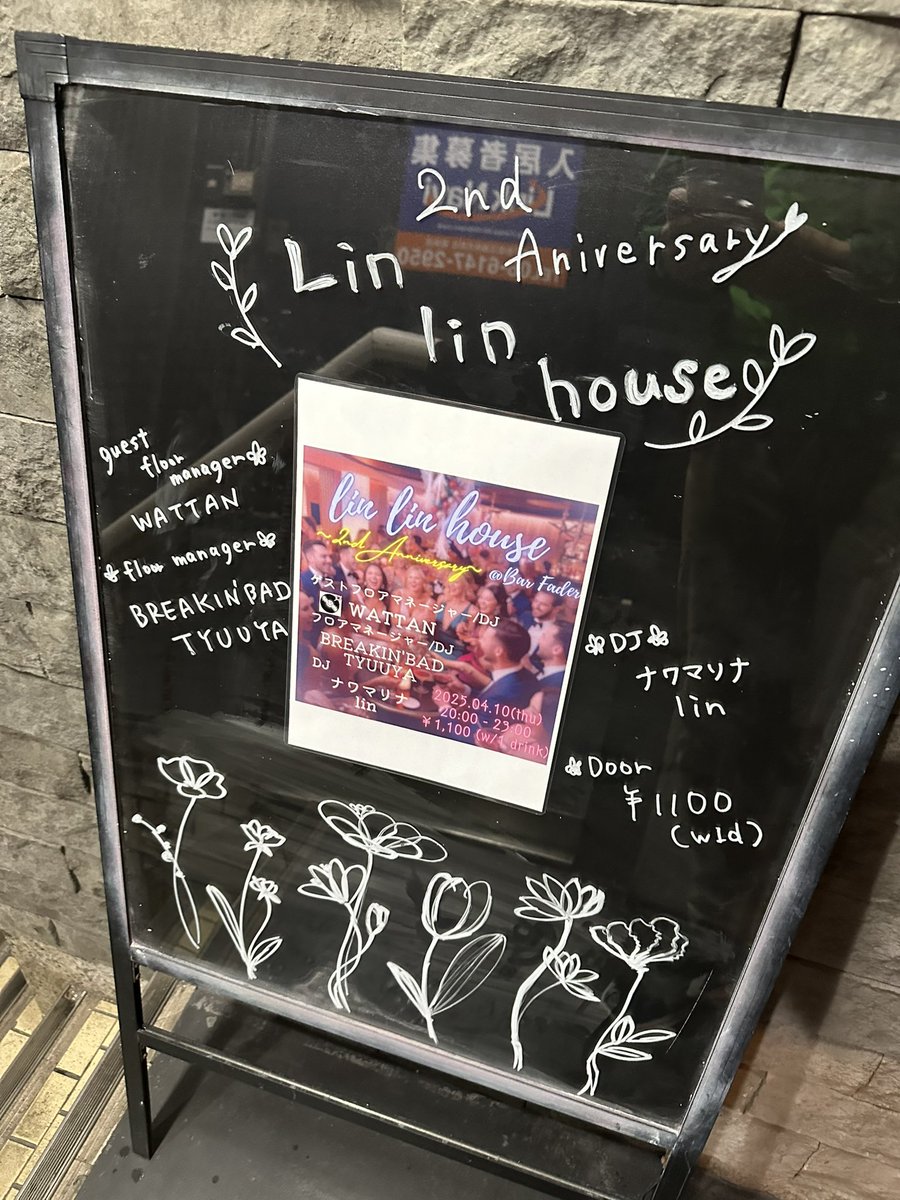 2nd
Aniversary
Lin
lin
house
guest
floor
manager
WATTAN
floor manager
BREAKIN'BAD
TYUUYA
lin lin house
~2nd Anniversary~
@Bar Fader
ゲストフロアマネージャー/DJ
WATTAN
フロアマネージャー/DJ
BREAKIN'BAD
TYUUYA
DJ
ナワマリナ
lin
2025.04.10(thu)
20:00 - 23:00
¥1,100 (w/1 drink)
DJ
ナワマリナ
lin
Door
¥1100
(w1d)
入居者募集
Link Navi
6147-2950